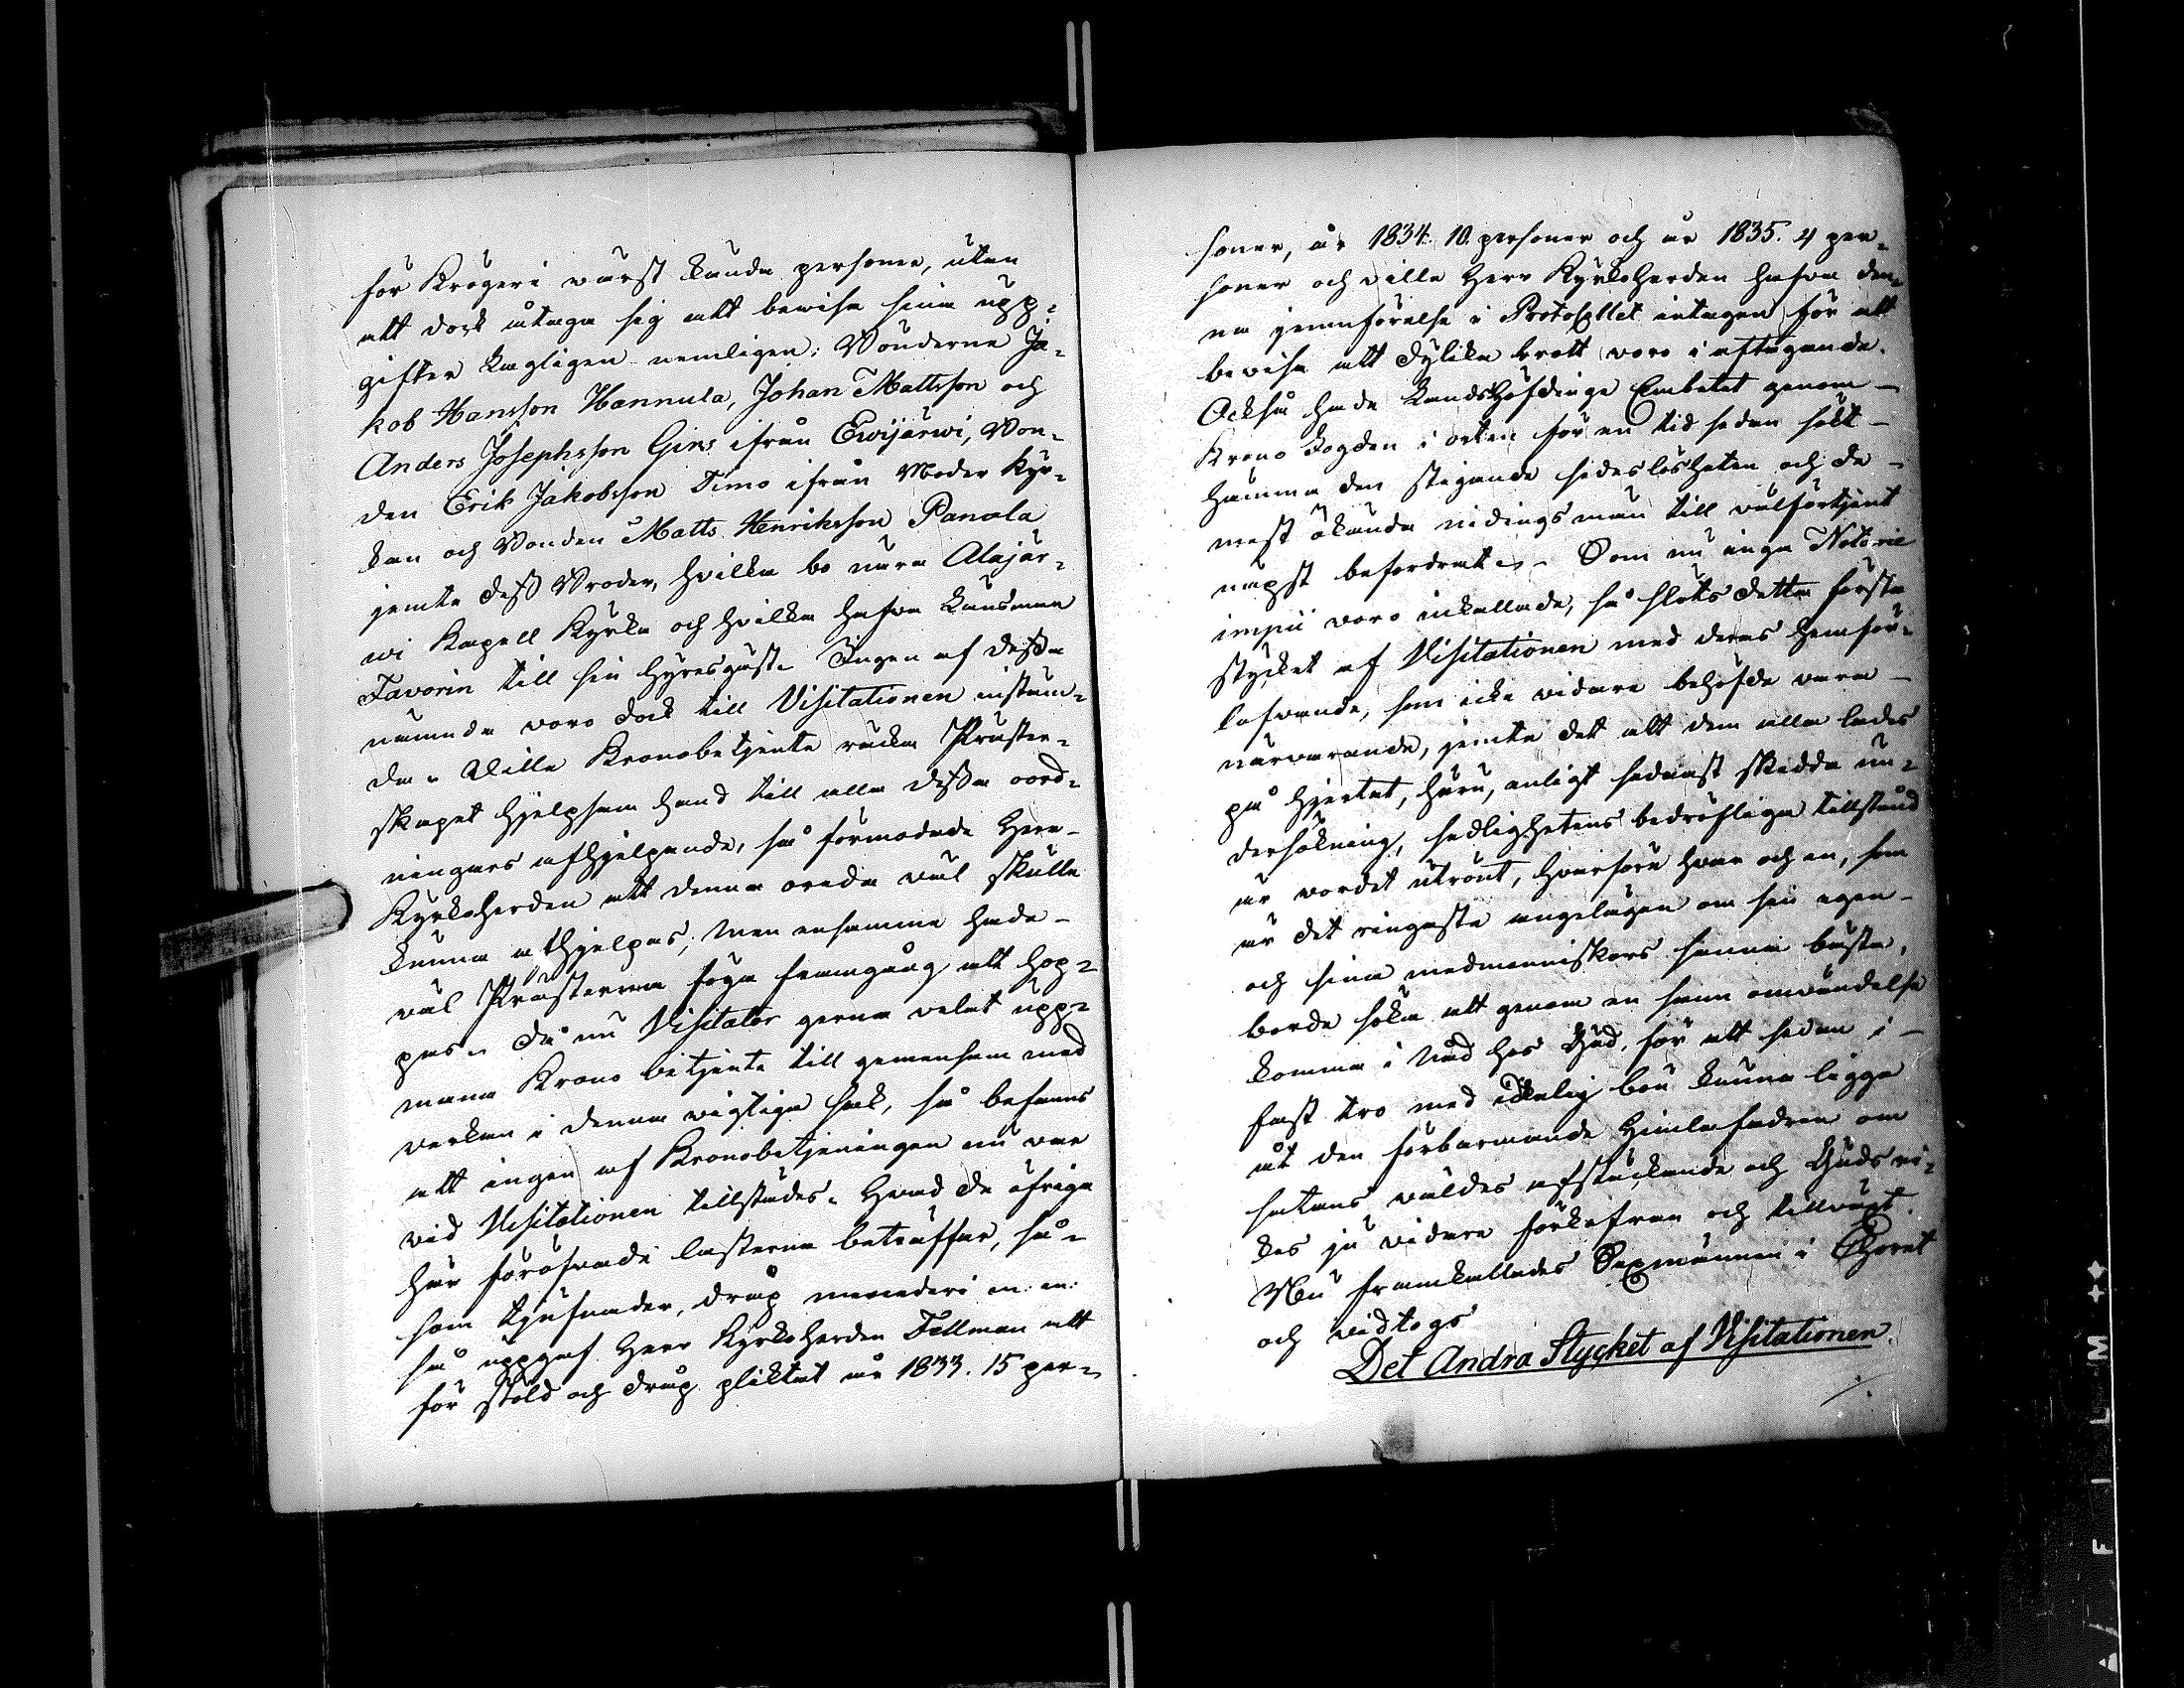 för Krögeri wärst kända personer, utan
att dock åtaga sig att bewisa sina upp-
gifter lagligen nemligen: Bönderne Ja-
kob Hansson Hannula, Johan Mattsson och
Anders Josephsson Gers ifrån Ewijärwi, Bon-
den Erik Jakobsson Timo ifrån Moder kyr-
kan och Bonden Matts Henriksson Panola
jemte dess Broder, hvilka bo nära Alajär-
wi Kapell Kyrka och hvilka hafva Länsman
Favorin till sin hyresgäst. Ingen af dessa
nämnde voro dock till Visitationen instäm-
da. Ville Kronobetjente räcka Präster-
skapet hjelpsam hand till alla dessa oord-
ningars afhjelpande, så förmodade Herr
Kyrkoherden att denna oreda väl skulle
kunna afhjelpas; men ensamme hade
väl Prästerna föga framgång att hop-
pas. Då nu Visitator gerna velat upp-
mana Krono betjente till gemensam med
verkan i denna wigtiga sak, så befanns
att ingen af Kronobetjeningen nu var
vid Visitationen tillstädes. Hvad de öfriga
här föröfvade lasterna beträffar, så-
som tjufnader, dråp meneder m: m:
så uppgaf Herr Kyrkoherden Fellman att
för stöld och dråp pliktat år 1833. 15 per-
soner, år 1834. 10. personer och år 1835. 4 per-
soner och ville Herr Kyrkoherden hafva den-
na jemnförelse i Protokollet intagen för att
bevisa att dylika brott voro i aftagande.
Också hade Landshöfdinge Embetet genom
Krono Fogden i orten för en tid sedan sökt
hämma den stigande sedeslösheten och de
mest ökända nidingsmän till välförtjent
näpst befordrat. Som nu inga Notorie
impii voro inkallade, så slöts detta första
stycket af Visitationen med deras hemför-
lofvande, som icke vidare behöfde vara
närvarande, jemte det att dem alla lades
på hjertat, huru, enligt sednast skedda un-
dersökning, sedlighetens bedröfliga tillstånd
är vordet utrönt, hvarföre hvar och en, som
är det ringaste angelägen om sin egen
och sina medmenniskors sanna bästa,
borde söka att genom en sann omvändelse
komma i Nåd hos Gud, för att sedan i
fast tro med idkelig bön kunna ligga
åt den förbarmande Himlafadren om
satans väldes afstäckande och Guds ri-
kes ju vidare förkofran och tillväxt.
Nu framkallades Sexmännen i Choret
och vidtogs
Det Andra Stycket af Visitationen.